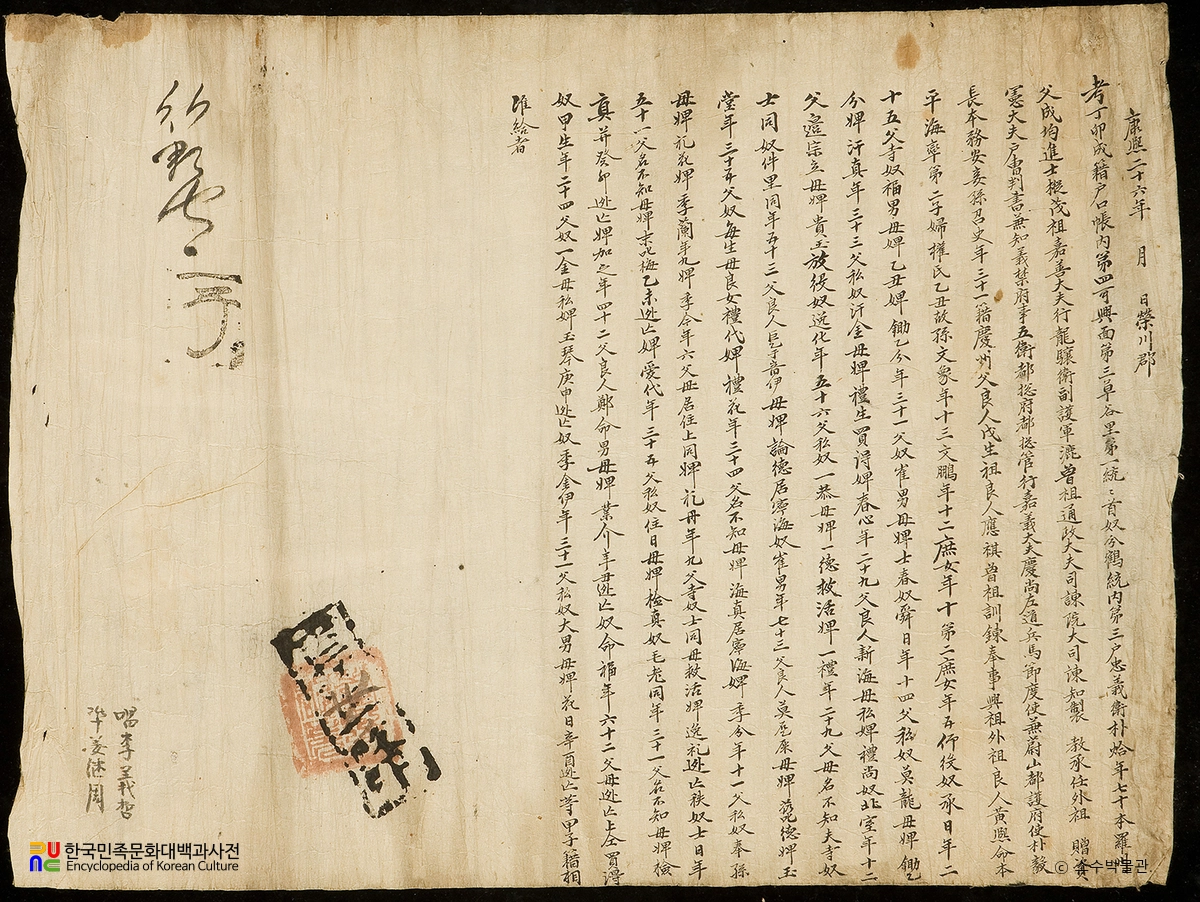 康熙二十六年 月 日榮川郡
考丁卯成籍户口帳內第四可興面第三草谷里第一統々首奴今鶴統內第三户忠義衛朴 年七十本羅州
父成均進士樅茂祖嘉善大夫行龍驤衛副護軍漉曾祖通政大夫司諫院大司諫知製 教承任外祖 贈資
憲大夫户曹判書兼知義禁府事五衛都摠府都摠管行嘉義大夫慶尚左道兵馬節度使兼蔚山都護府使朴毅
長本務安妾孫召史年三十一籍慶州父良人戊生祖良人應祺曾祖訓鍊奉事興祖外祖良人黃熙命本
平海率第二子婦權氏乙丑故孫文象年十三文鵬年十二庶女年十第二庶女年五仰役奴承日年二
十五父寺奴福男母婢乙丑婢鋤乙今年三十一父奴崔男母婢士春奴舜日年十四父私奴莫龍母婢鋤乙
今婢汗真年三十三父私奴汗金母婢禮生買得婢春心年二十九父良人新海母私婢禮尚奴北室年十二
父邉宗立母婢貴玉放役奴逆化年五十六父私奴一恭母婢一德救活婢一禮年二十九父母名不知夫寺奴
士同奴件里同年五十三父良人 音伊母婢論德居寧海奴崔男年七十三父良人莫 母婢 德婢玉
堂年三十五父奴每生母良女禮代婢禮花年三十四父名不知母婢海真居寧海婢季分年十一父私奴奉孫
母婢礼花婢季蘭年九婢季今年六父母居住上同婢礼丹年九父寺奴士同母救活婢逸礼逃亡秩奴士日年
五十一父名不知母婢京非梅乙未逃亡婢愛代年三十五父私奴住日母婢檢真奴毛老同年三十一父名不知母婢檢
真并癸卯逃亡婢加之年四十二父良人鄭命男母婢業介辛丑逃亡奴命福年六十二父母逃亡上仝買得
奴甲生年二十四父奴一金母私婢玉琴庚申逃亡奴季金伊年三十一父私奴大男母婢花日辛酉逃亡等甲子籍相
准給者
行郡守
唱李義哲
準姜継周
한국민족문화대백과사전
Encyclopedia of Korean Culture
© 소수박물관